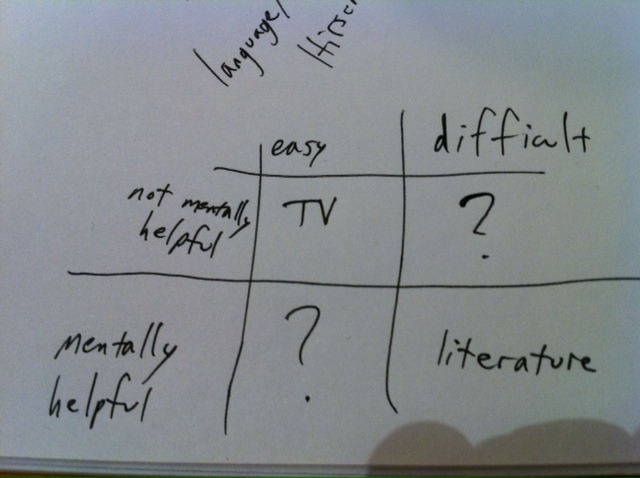 language/
easy
difficult
not mentally
helpful
TV
?
mentally
helpful
?
literature